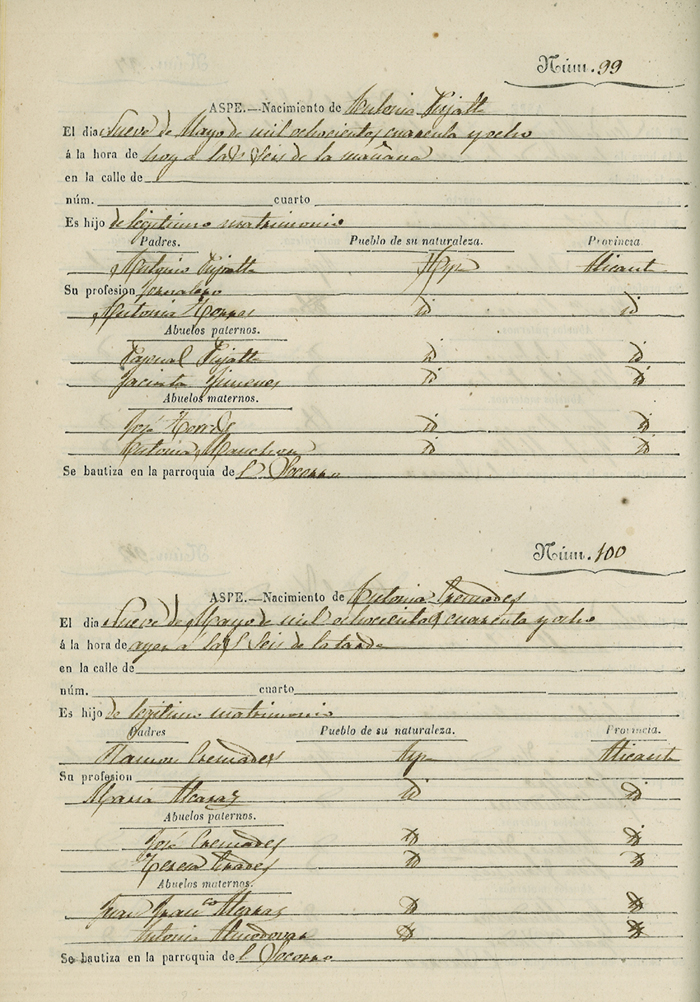 Núm. 99
ASPE.—Nacimiento de Antonia Pujalte
El dia Nueve de Mayo de mil ochocientos cuarenta y ocho
á la hora de hoy a las seis de la mañana
en la calle de
núm. cuarto
Es hijo de legitimo matrimonio
Padres. Pueblo de su naturaleza. Provincia.
Pujalte Aspe Alicante
Su profesion Jornalero
Antonia id id
Abuelos paternos.
Pascual Pujalte id id
Jacinta Gimenez id id
Abuelos maternos.
José id id
Antonia Manchon id id
Se bautiza en la parroquia de l Socorro
Núm. 100
ASPE.—Nacimiento de Antonia Cremades
El dia Nueve de Mayo de mil ochocientos cuarenta y ocho
á la hora de ayer á las seis de la tarde
en la calle de
núm. cuarto
Es hijo de legitimo matrimonio
Padres Pueblo de su naturaleza. Provincia.
Ramon Cremades Aspe Alicante
Su profesion
Maria Alcaraz id id
Abuelos paternos.
José Cremades id id
Teresa id id
Abuelos maternos.
Juan Franco Alcaraz id id
Antonia Almodovar id id
Se bautiza en la parroquia de l Socorro